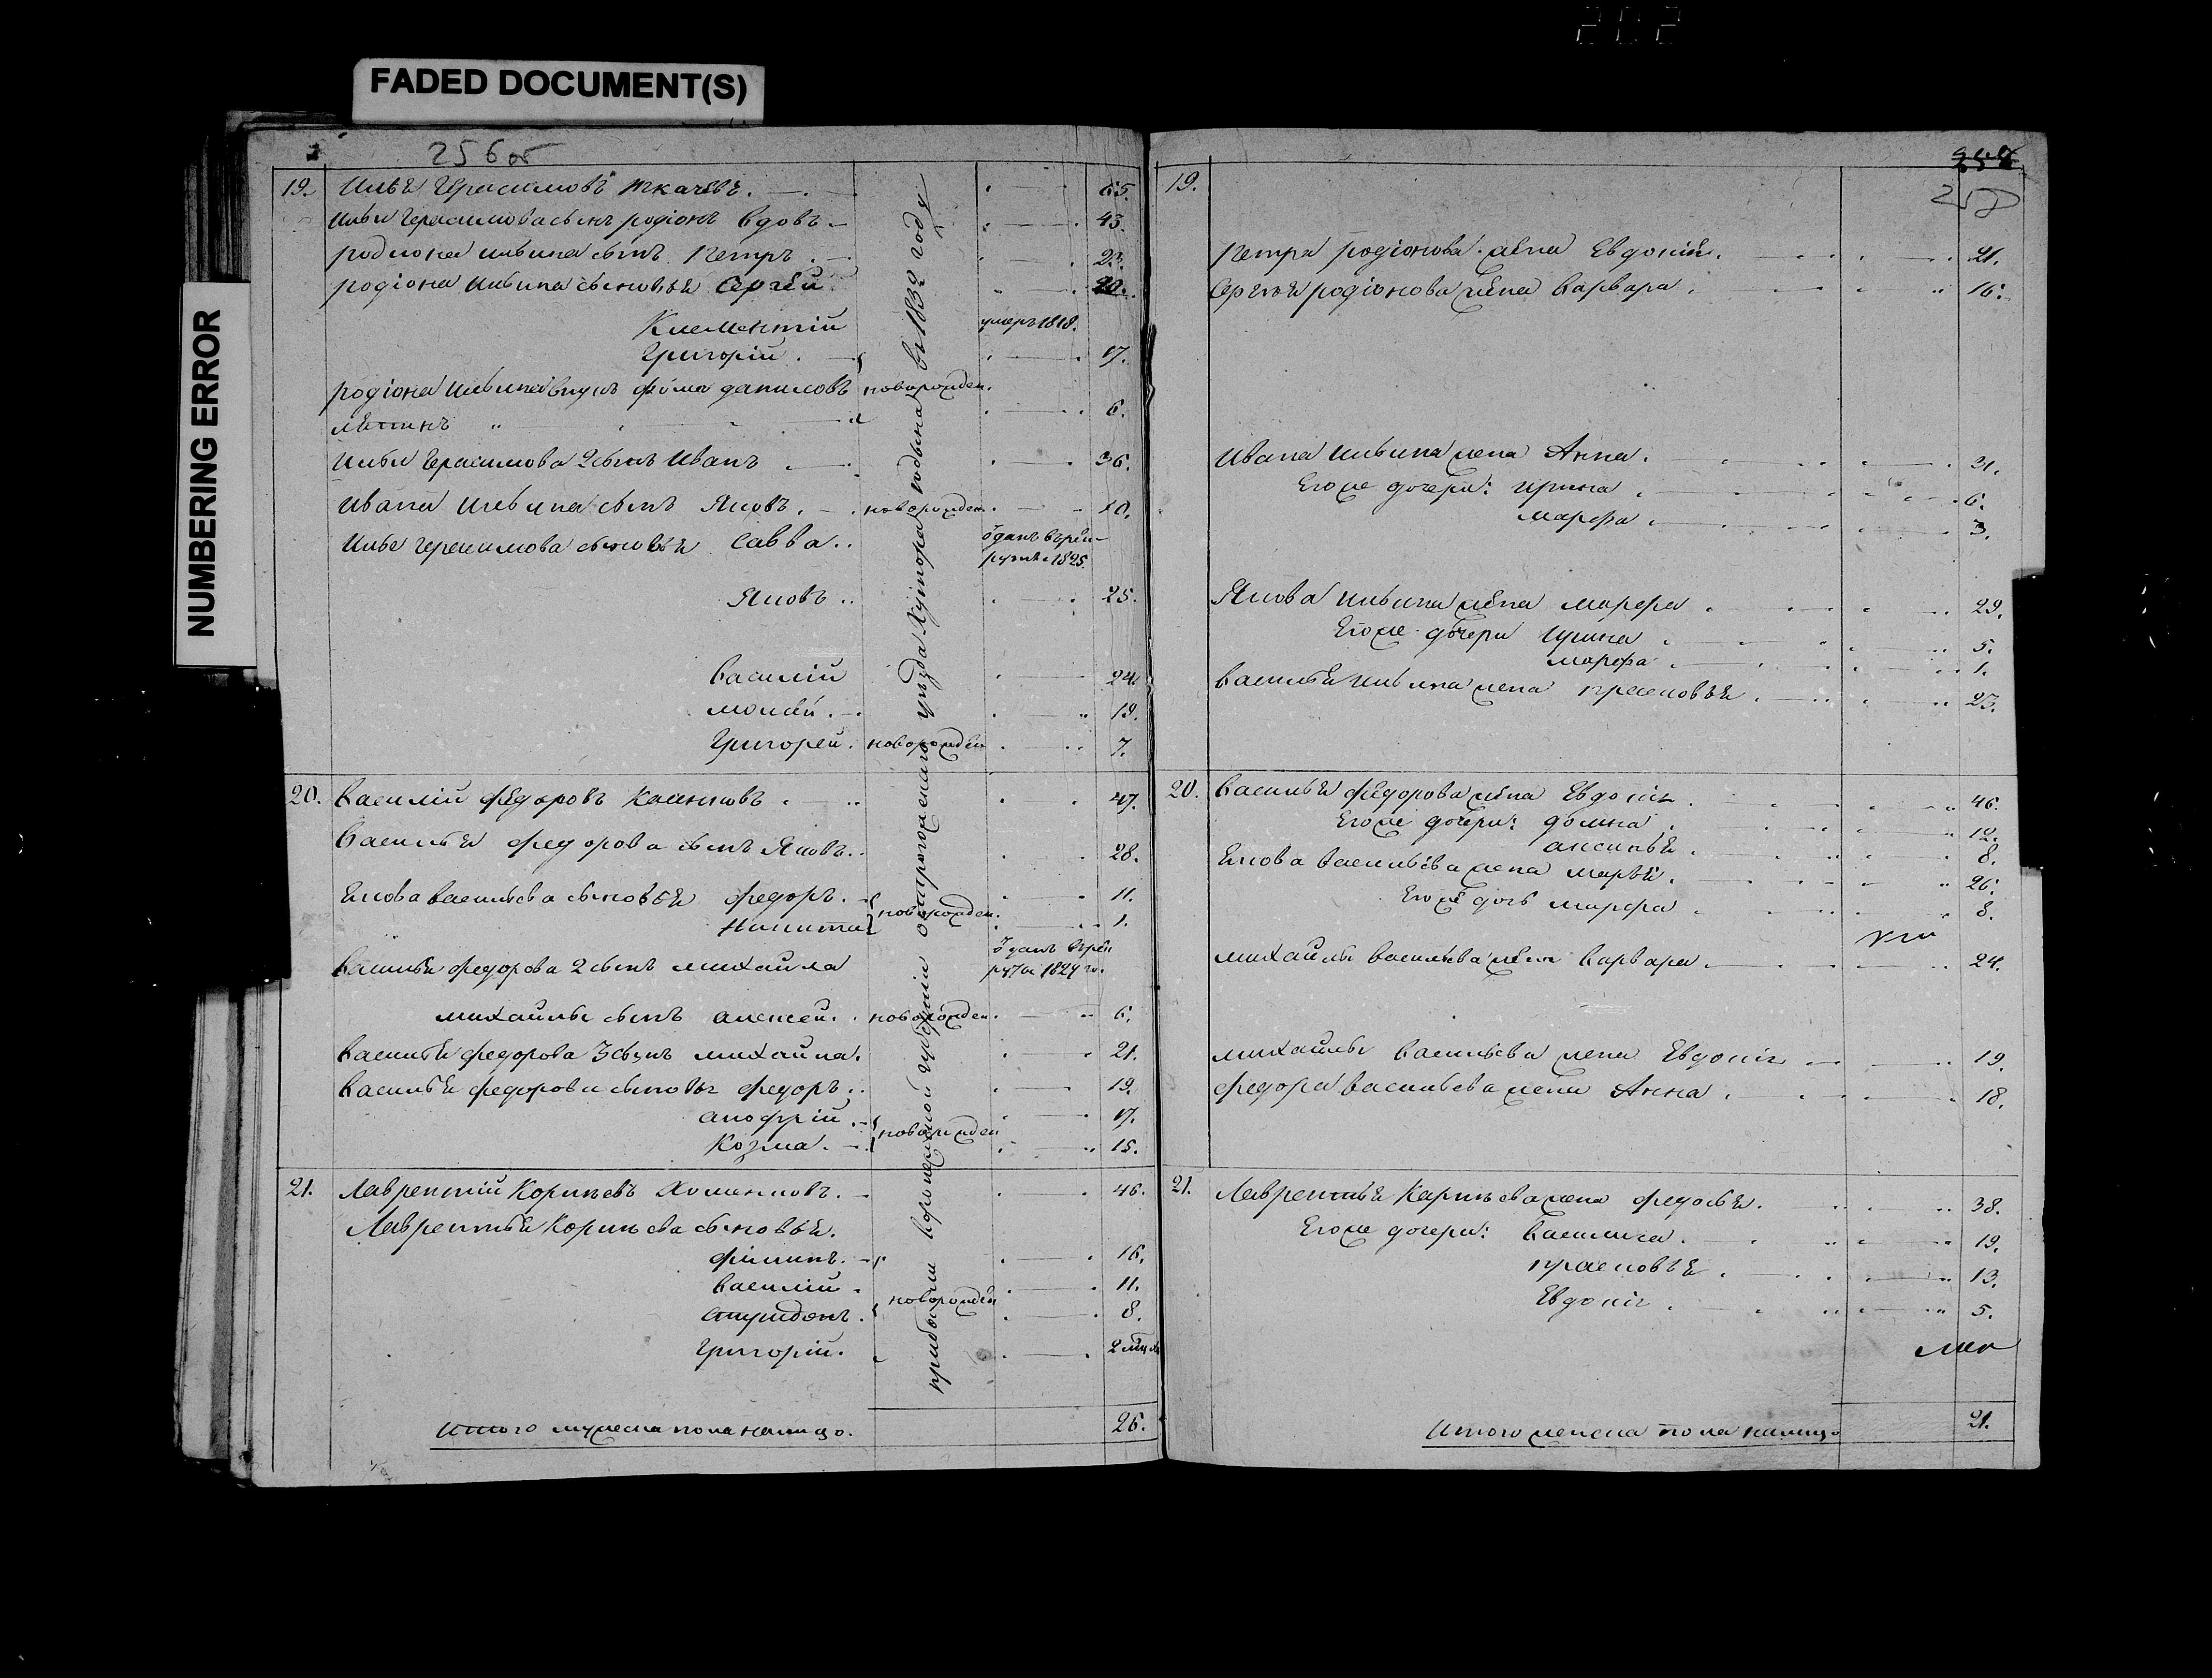 202
FADED DOCUMENT(S)
NUMBERING ERROR
256 об
19. Илья Герасимовъ Ткачевъ. 65.
Ильи Герасимова сынъ родіонъ вдовъ 43.
родиона ильина сынъ Петръ 23.
родіона ильина сыновья Сергѣй
Климентій умеръ 1818.
Григорій. 17.
родіона ильина внукъ фома даниловъ новорожден.
6.
Ильи Герасимова 2 сынъ Иванъ 36.
Ивана ильина сынъ Яковъ. новорожден. 10.
Ильи Герасимова сыновья Савва. ѿданъ врек-
руты 1825.
Яковъ 25.
Василій 24.
19.
Григорей. новорожден 7.
20. Василій федоровъ 47.
Василья федорова сынъ Яковъ. 28.
Якова васильева сыновья федоръ. 11.
Никита новорожден. 1.
Василья федорова 2 сынъ михайла ѿданъ врек
руты 1824 го.
михайлы сынъ алексей. новорожден. 6.
Василья федорова 3 сынъ михайла. 21.
Василья федорова сыновья федоръ 19.
анофрій. 17.
Козма. новорожден 15.
21. Лаврентій Корнѣевъ Хоменковъ. 46.
Лаврентья Корнѣева сыновья.
филипъ. 16.
Василій 11.
новорожден
Спиридонъ. 8.
Григорій. 2 мцы
прибыли воронежской губерніи острогожскаго уѣзда хутора вь 1832 году
Итого мужеска пола налицо. 26.
257
19.
Петра родіонова жена Евдокія. 21.
Сергѣя родіонова жена варвара. 16.
Ивана ильина жена Анна. 31.
Егоже дочери: ирина 6.
марфа 3.
Якова ильина жена марфа 29.
Егоже дочери ирина 5.
марфа 1.
василья ильина жена прасковья 23.
20. Василья федорова жена Евдокія 46.
Егоже дочери: домна 12.
аксинья 8.
Якова васильева жена марья. 26.
Егоже дочь марфа 8.
михайлы васильева жена варвара 24.
михайлы васильева жена Евдокія 19.
федора васильева жена Анна 18.
21. Лаврентья Карнѣева жена федосья. 38.
Егоже дочери: Василиса. 19.
прасковья 13.
Евдокія 5.
Итого женска пола налицо 21.